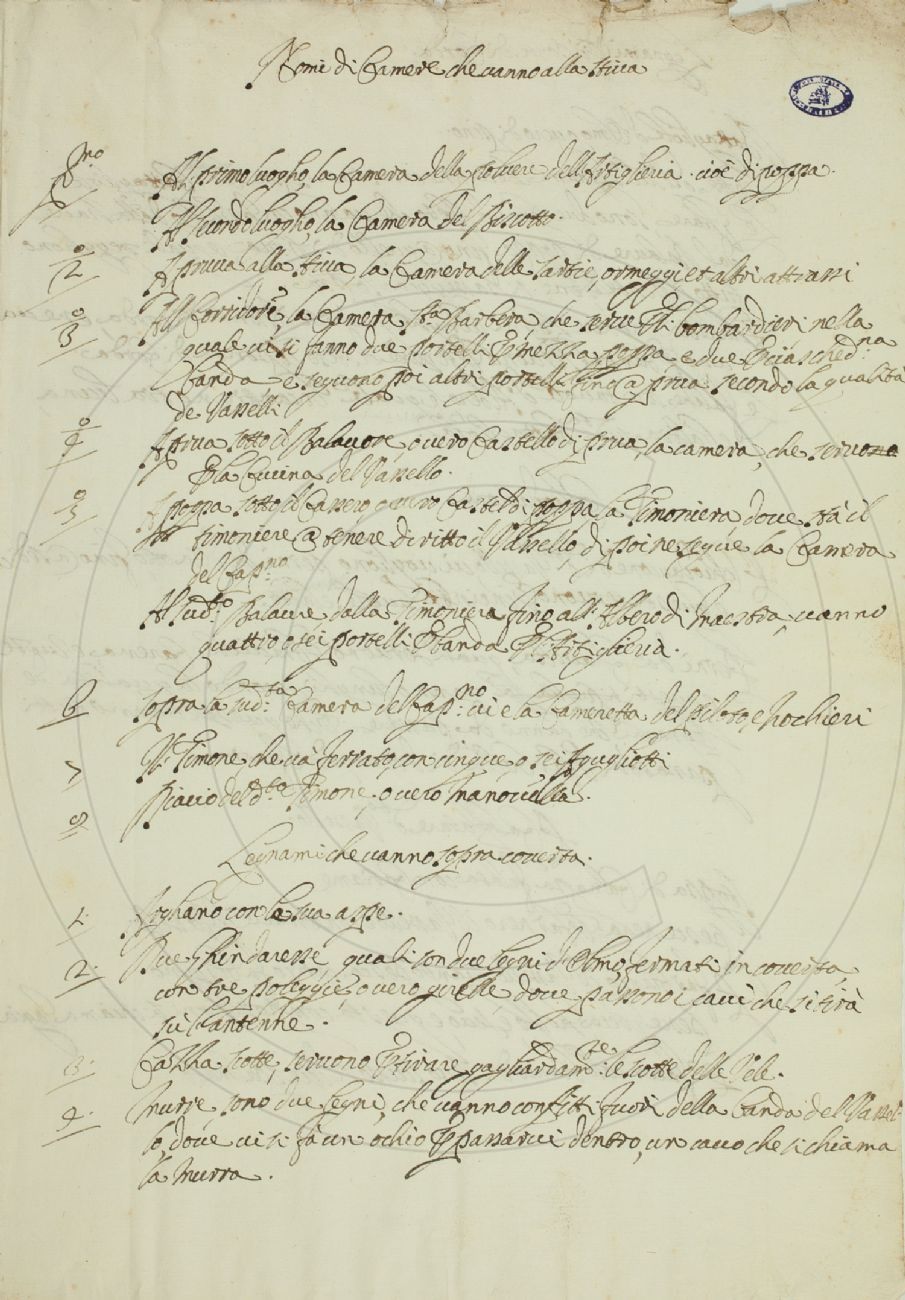 Nomi di Camere che vanno alla stiva
P.mo Al primo luogho, la Camera della polvere dell'Artiglieria. cioè di poppa.
Al secondo luogho, la Camera del Biscotto.
2 A prua alla stiva, la Camera delle sartie, ormeggi et altri attrazzi
3 Al Corridore, la Camera S.ta Barbera che serve p li bombardieri nella
quale vi si fanno due portelli p mezza poppa, e due p ciasched.na
banda, e seguono poi altri portelli fino @ prua secondo la qualità
de Vasselli
4 A prua sotto il Balauore, overo Castello di prua, la camera, che servono
p la Cucina del Vassello.
5 A poppa sotto il Cassero, overo Castel di poppa, la Timoniera dove stà il
timoniere @ tenere diritto il Vassello, di poi ne segue la Camera
del Cap.no
Al sud.to Balaure dalla Timoniera fino all'Albero di Maestra, vanno
quattro, o sei portelli p banda p l'Artiglieria.
6 Sopra la sud.ta Camera del Cap.no vi e la Camenetta del Piloto, e Nochieri
7 Il Timone, che và ferrato, con cinque, o sei Agugliotti
8 Riavio del d.to Timone, overo Manovella.
Legnami che vanno sopra coverta.
1. Arghano con la sua aspe.
2. Due Ghindaresse quali son due legni d'Olmo, fermati in coverta,
con tre poleggie, overo girelle, dove passono i cavi che si tirà
sù l'antenne.
3. Cazza scotte, servono p tirare gagliardam.te le scotte delle Vele.
4. Murre sono due legni, che vanno confitti fuori della banda del Vassel-
lo, dove vi si fà un ochio p passarvi dentro, un cavo che si chiama
la Murra.